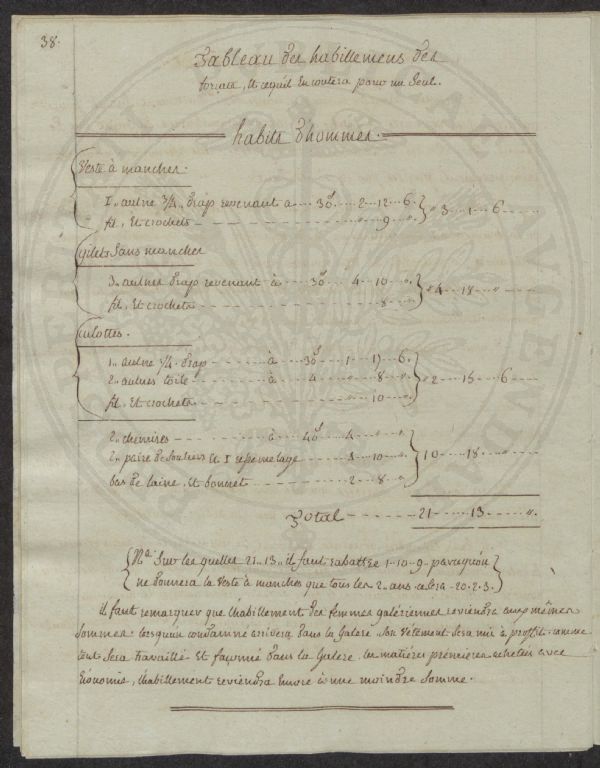 38.
Tableau des habillemens des
forçats, et cequil en coutera pour un Seul.
habits d'hommes.
Veste à manches.
1.. aulne 3/4.. drap revenant à 30ˢ 2 12 6. 3 1 6
fil, Et crochets " 9 ".
Gilets Sans manches
3.. aulnes drap revenant à 30 4 10 ". 4 18 "
fil, Et crochets 8 ".
Culottes.
1.. aulne 1/4. drap à 30ˢ 1 17 6. 2 15 6
2.. aulnes toile à 4 " 8 ".
fil, Et crochets " 10 ".
2.. chemises à 40ˢ 4 " ". 10 18 "
2.. paire de Souliers Et 1 1 10 ".
bas de laine, Et bonnets 2 8 ".
Total 21 13 ".
Nᵃ. Sur les quelles 21.. 13.. il faut rabattre 1-10-9- parcequ'on
ne donnera la Veste à manches que tous les 2.. ans 20.2.3.
il faut remarquer que l'habillement des femmes galériennes reviendra aux mêmes
Sommes. lorsqu'un condamné arrivera dans la Galere, Son Vêtement Sera mis à proffit. comme
tout Sera travaillé Et façonné dans la Galere, les matières premières achetées avec
Economie, l'habillement reviendra Encore à une moindre Somme.